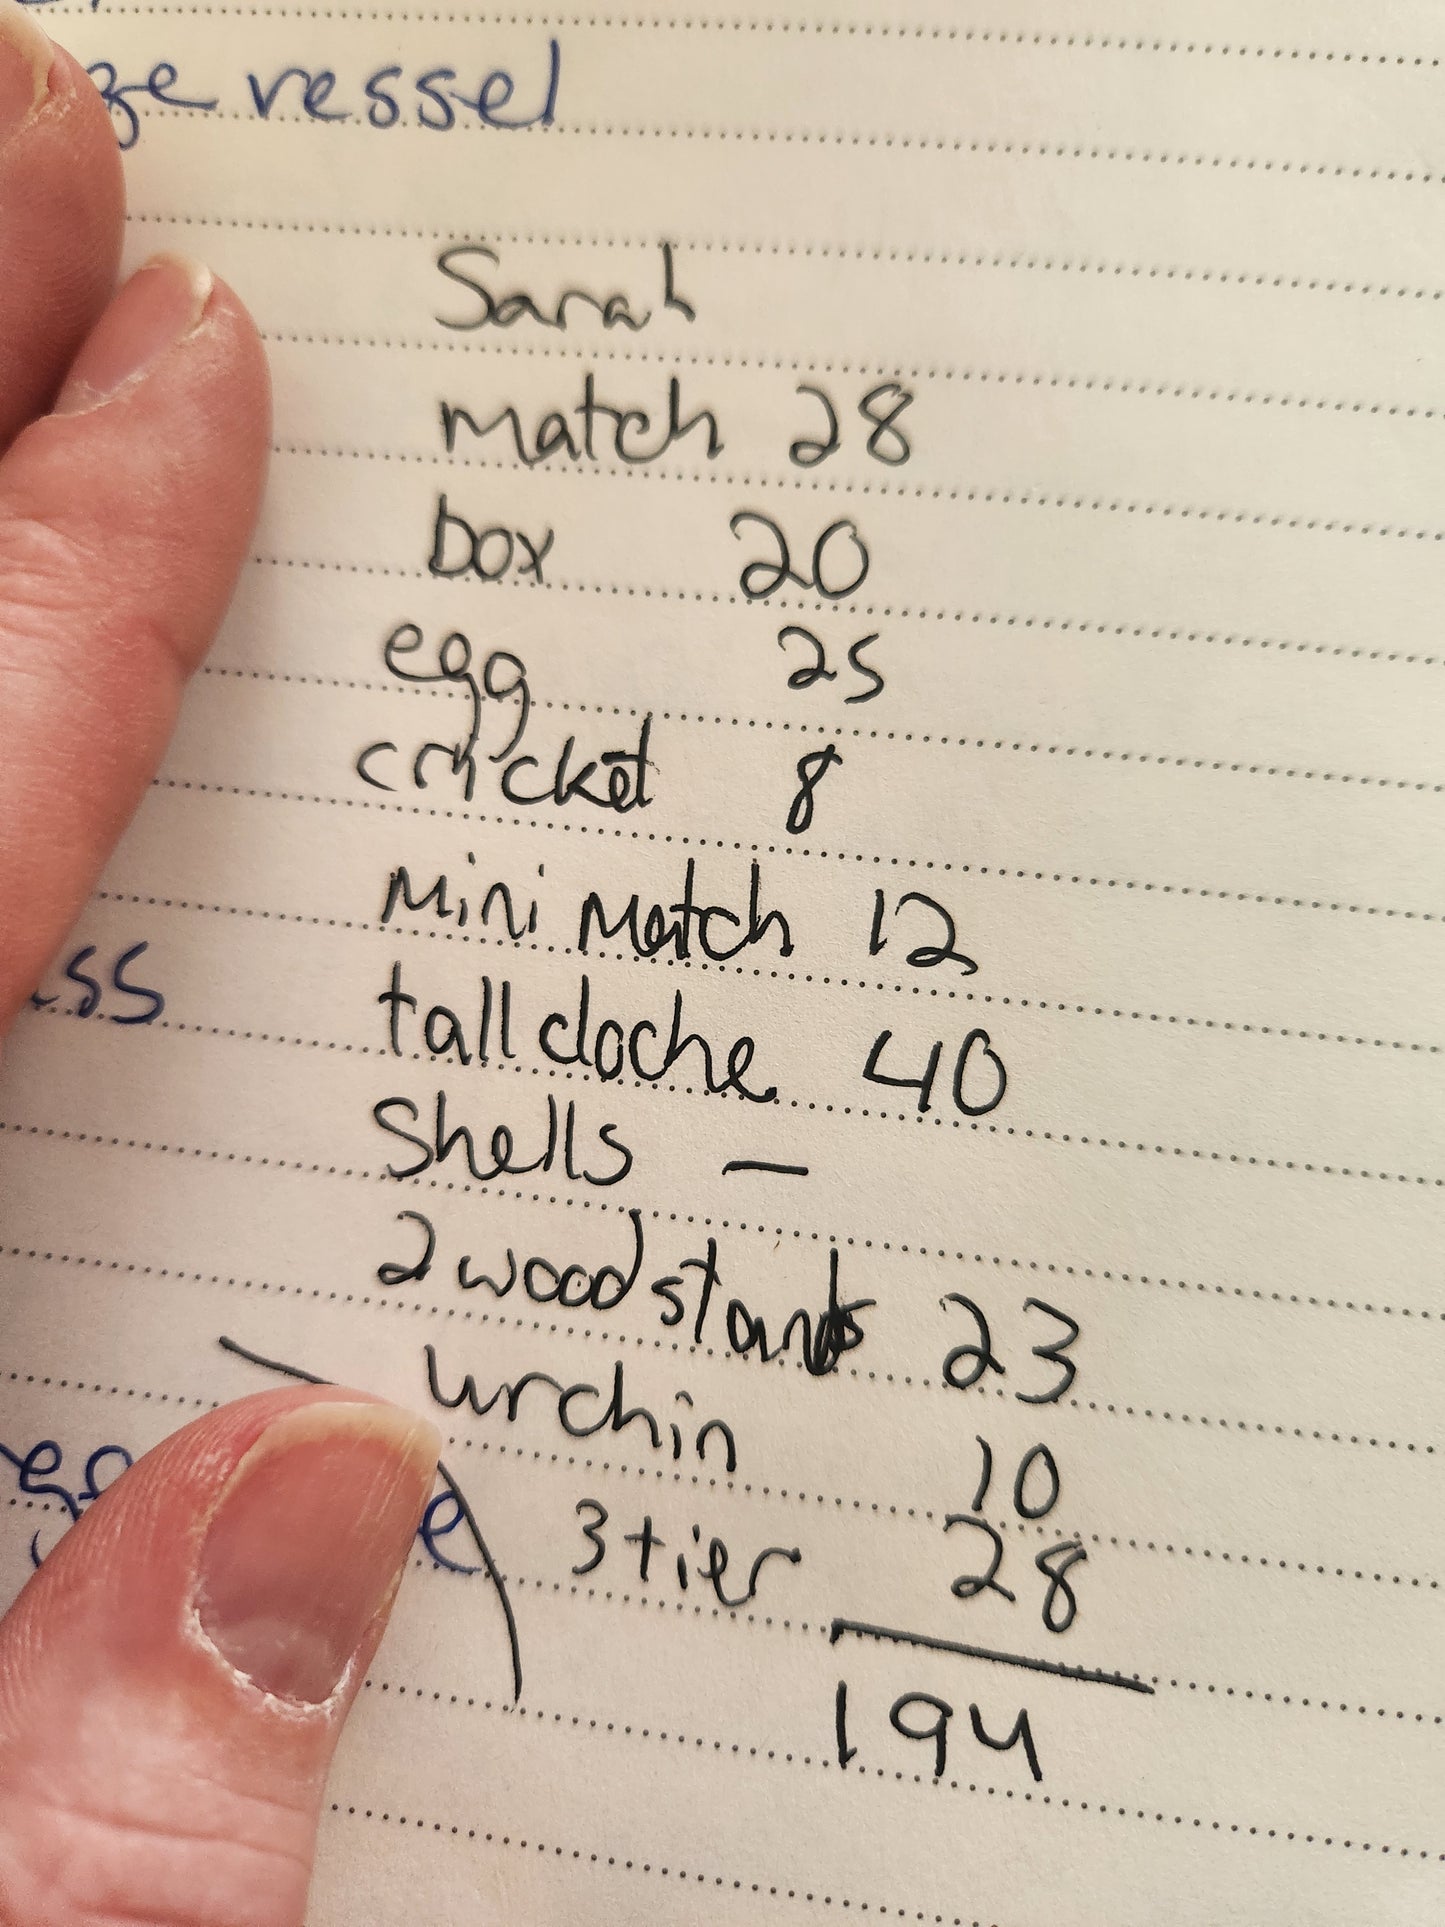 vessel
Sarah
match 28
box 20
egg 25
cricket 8
Mini Match 12
tall cloche 40
Shells —
2 wood stands 23
urchin 10
3 tier 28
194